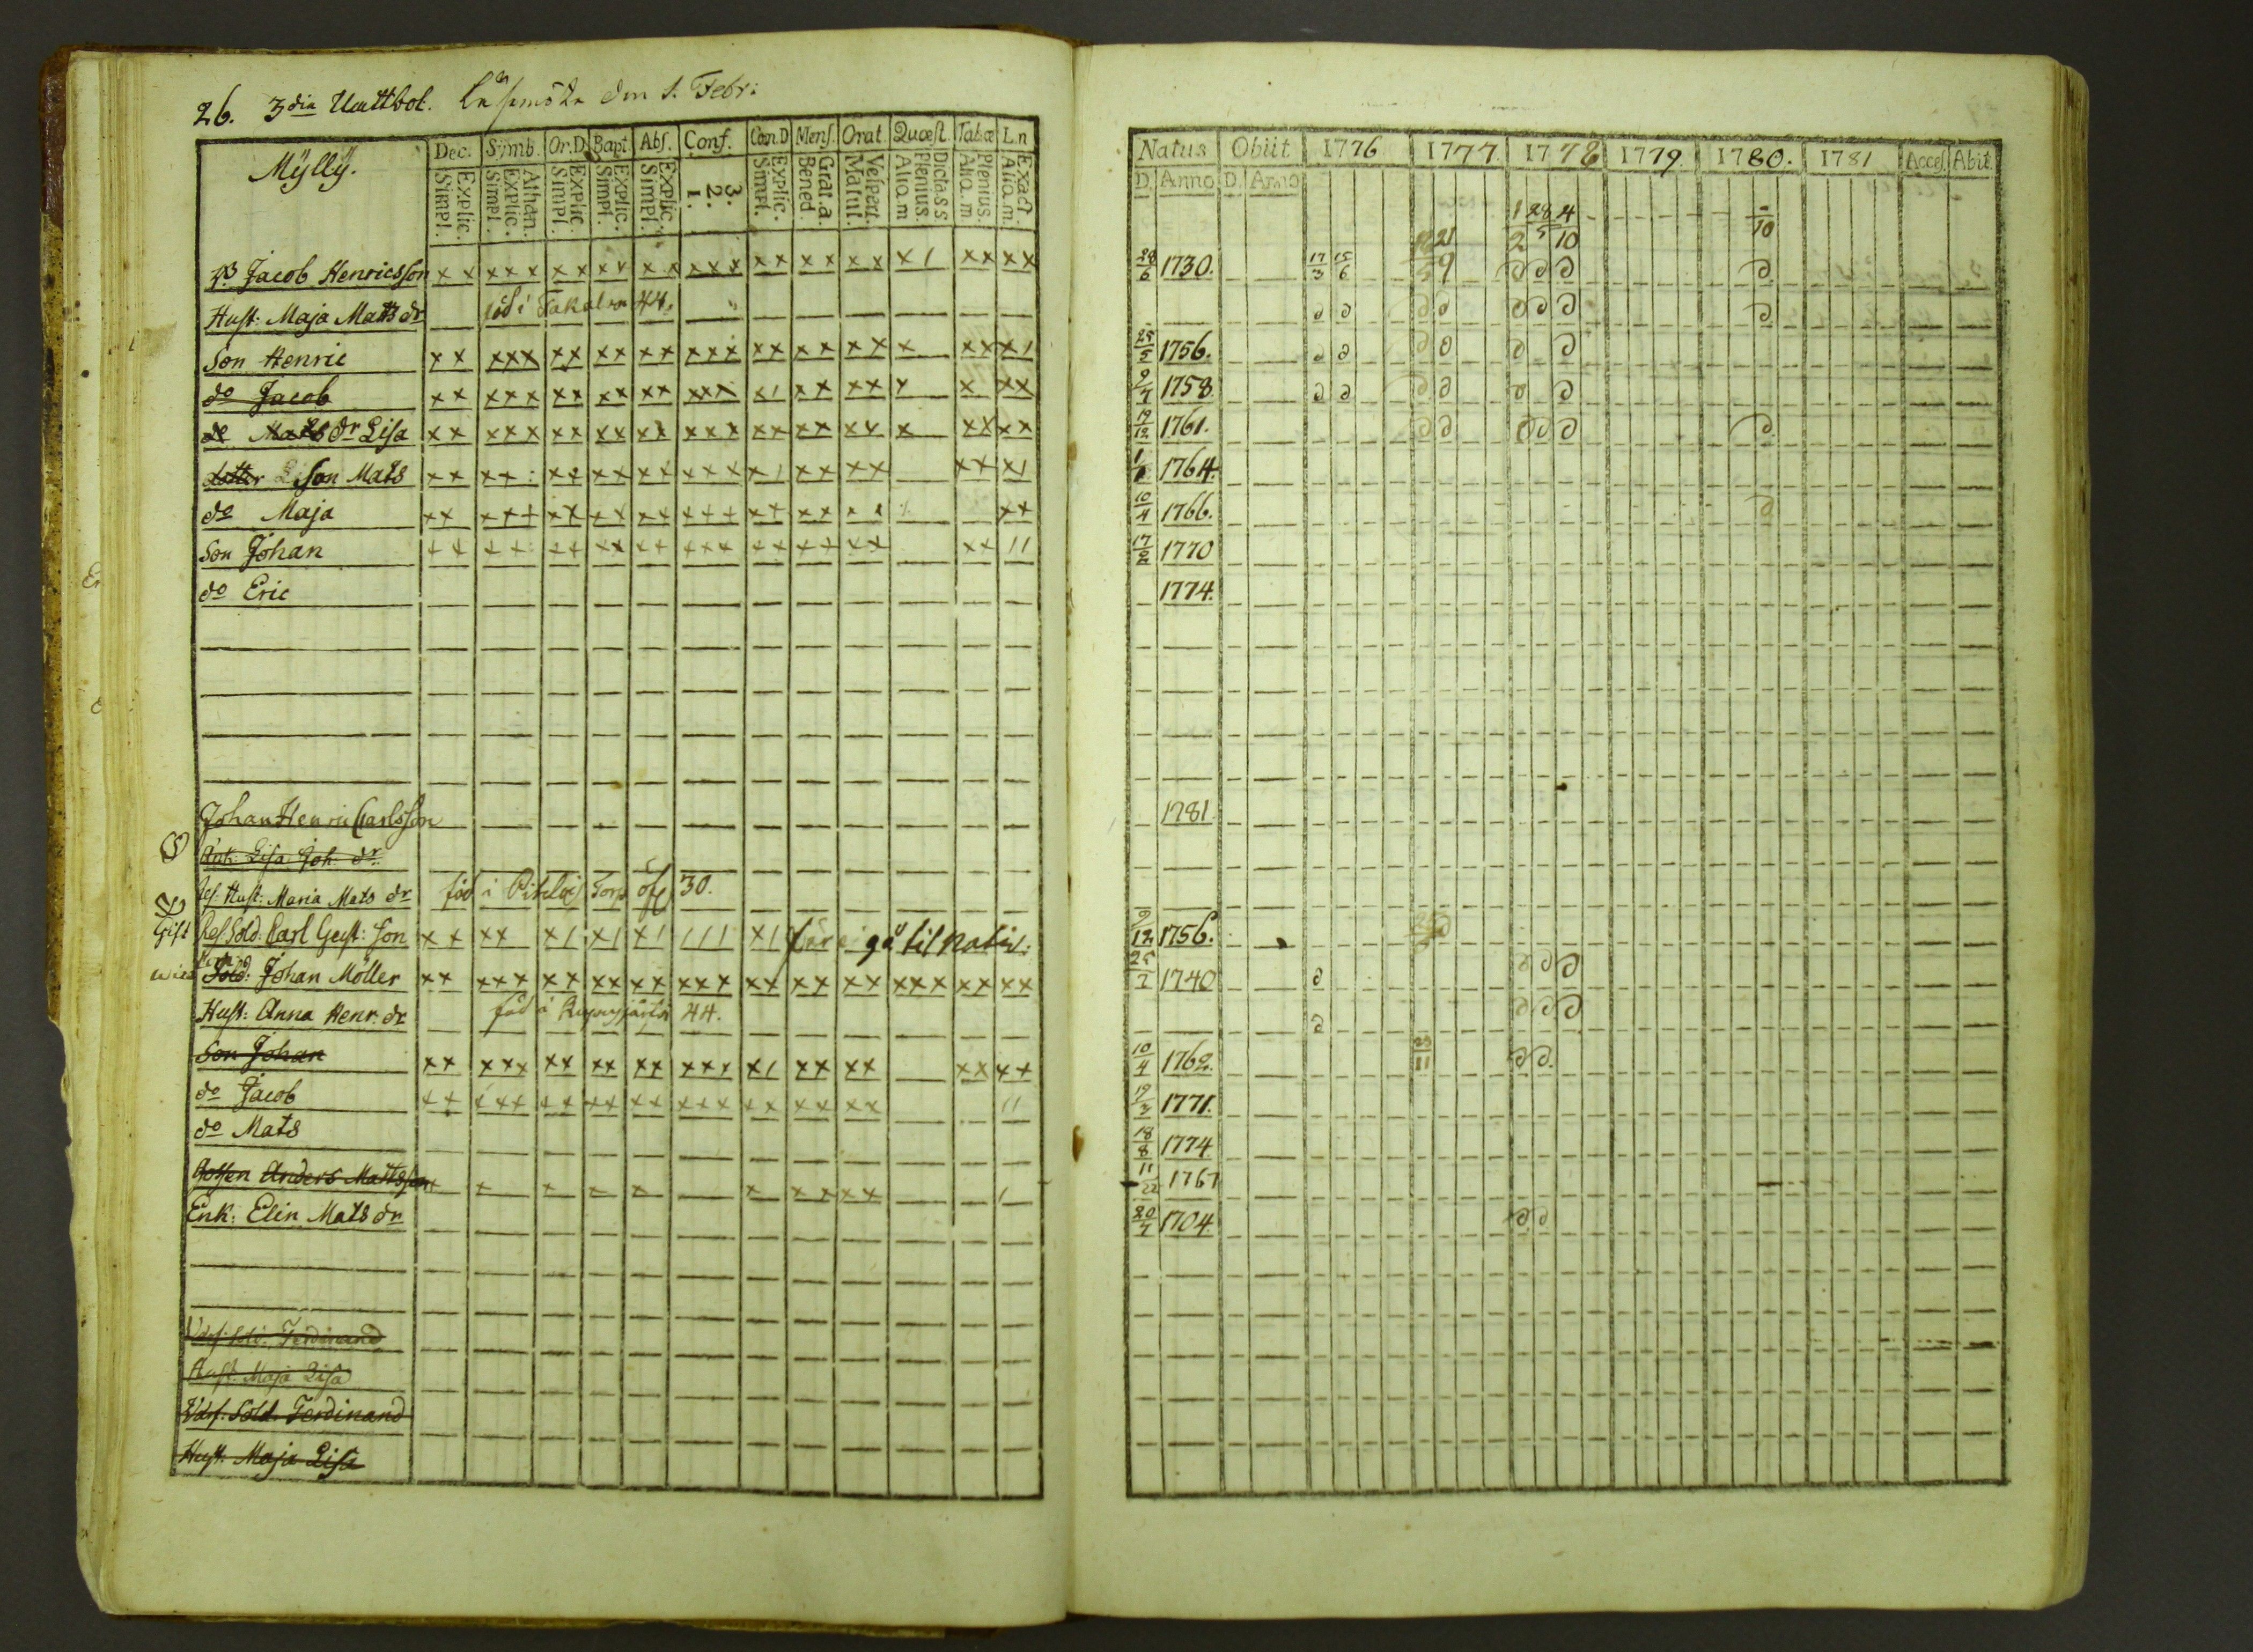 26. 3dia Uuttbol. Läsmöte den 1. Febr:
Mÿllÿ.
Dec. Sÿmb. Or.D. Bapt. Abs. Conf. Cœn.D Mens. Orat. Quæst. Tabæ L.n
Simpl. Explic. Simpl. Explic. Athan. Simpl. Explic. Simpl. Explic. Simpl. Explic. 1. 2. 3. Simpl. Explic. Bened. Grat.a. Matut. Vespert. Aliq.m Plenius. Dicta s s Aliq.m Plenius. Aliq.m. Exact
Natus Obiit 1776 1777. 1778 1779. 1780. 1781 Acces. Abit.
D. Anno D. Anno
1 28 4
2 5 10
10
Jacob Henricsson x x x x x x x x x x x x x x x x x x x x x 1 x x x x 28/6 1730. 17/3 15/6
Hust: Maja Matts dr född i 44.
Son Henric x x x x x x x x x x x x x x x x x x x x x x x x 1 25/5 1756.
do Jacob x x x x x x x x x x x x x x 1 x x x x x x x x 9/7 1758
do Mats dr Lisa x x x x x x x x x x x x x x x x x x x x x x x x 19/12 1761.
dotter Son Mats x x x x x x x x x x x x x x 1 x x x x x x x 1 1764.
do Maja x x x x x x x x x x x x x x x x x x x x 10/4 1766.
Son Johan x x x x x x x x x x x x x x x x x x x x x x 1 1 17/2 1770
do Eric 1774.
Johan Henric Carlsson 1781
Enk: Lisa Joh: dr
Hust: Maria Mats dr född i Torp 30.
Gift Sold. Carl Gust: Son x x x x x 1 x 1 x 1 1 1 1 x 1 får ej gå til natiw. 9/12 1756.
Sold: Johan Möller x x x x x x x x x x x x x x x x x x x x x x x x x x x 25/7 1740
Hust: Anna Henr. dr född i 44.
Son Johan x x x x x x x x x x x x x x x 1 x x x x x x x x 10/4 1762. 23/11
do Jacob x x x x x x x x x x x x x x x x x x x x 1 1 19/3 1771.
do Mats 18/8 1774
Gossen Anders Mattsson x x x x x x x x x x 1 1767
Enk: Elin Mats dr 20/7 1704.
Ferdinand
Hust. Maja Lisa
Sold. Ferdinand
Hust: Maja Lisa